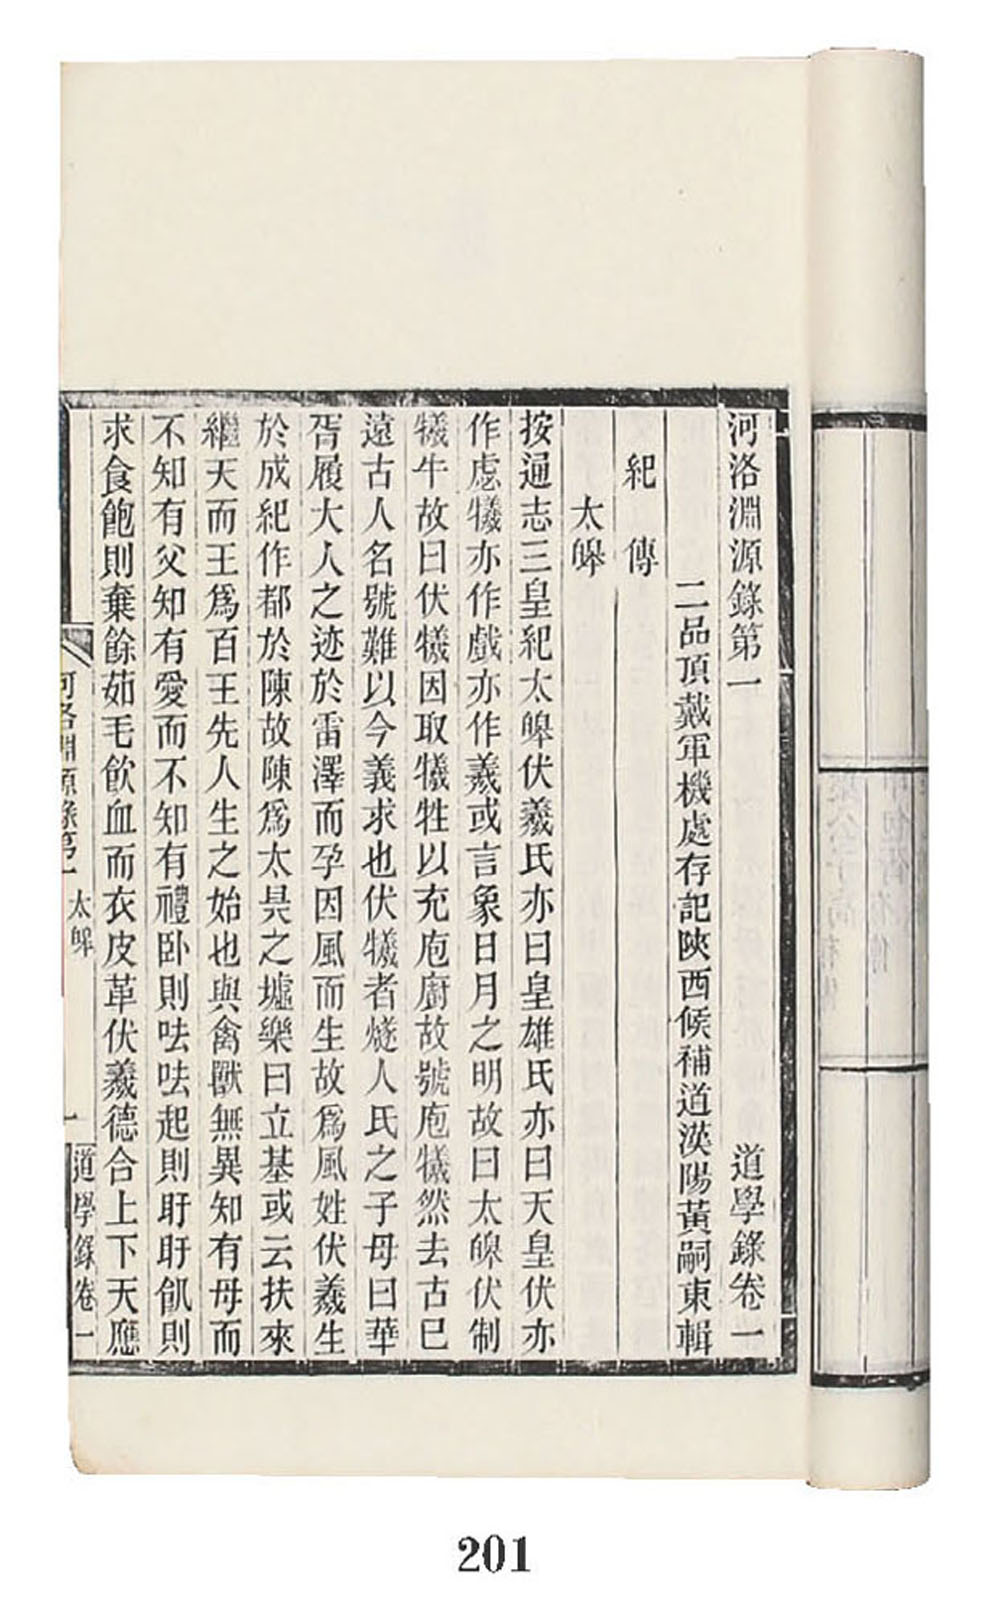 河洛淵源錄第一 道學錄卷一
二品頂戴軍機處存記陝西候補道漢陽黃嗣東輯
紀傳
太皞
按通志三皇紀太皞伏羲氏亦曰皇雄氏亦曰天皇伏亦
作虙犧亦作戲亦作羲或言象日月之明故曰太皞伏制
犧牛故曰伏犧因取犧牲以充庖廚故號庖犧然去古巳
遠古人名號難以今義求也伏犧者燧人氏之子母曰華
胥履大人之迹於雷澤而孕因風而生故爲風姓伏羲生
於成紀作都於陳故陳爲太昊之墟樂曰立基或云扶來
繼天而王爲百王先人生之始也與禽獸無異知有母而
不知有父知有愛而不知有禮卧則呿呿起則盱盱飢則
求食飽則棄餘茹毛飲血而衣皮革伏羲德合上下天應
河洛淵源錄第一 太皞 一 道學錄卷一
201